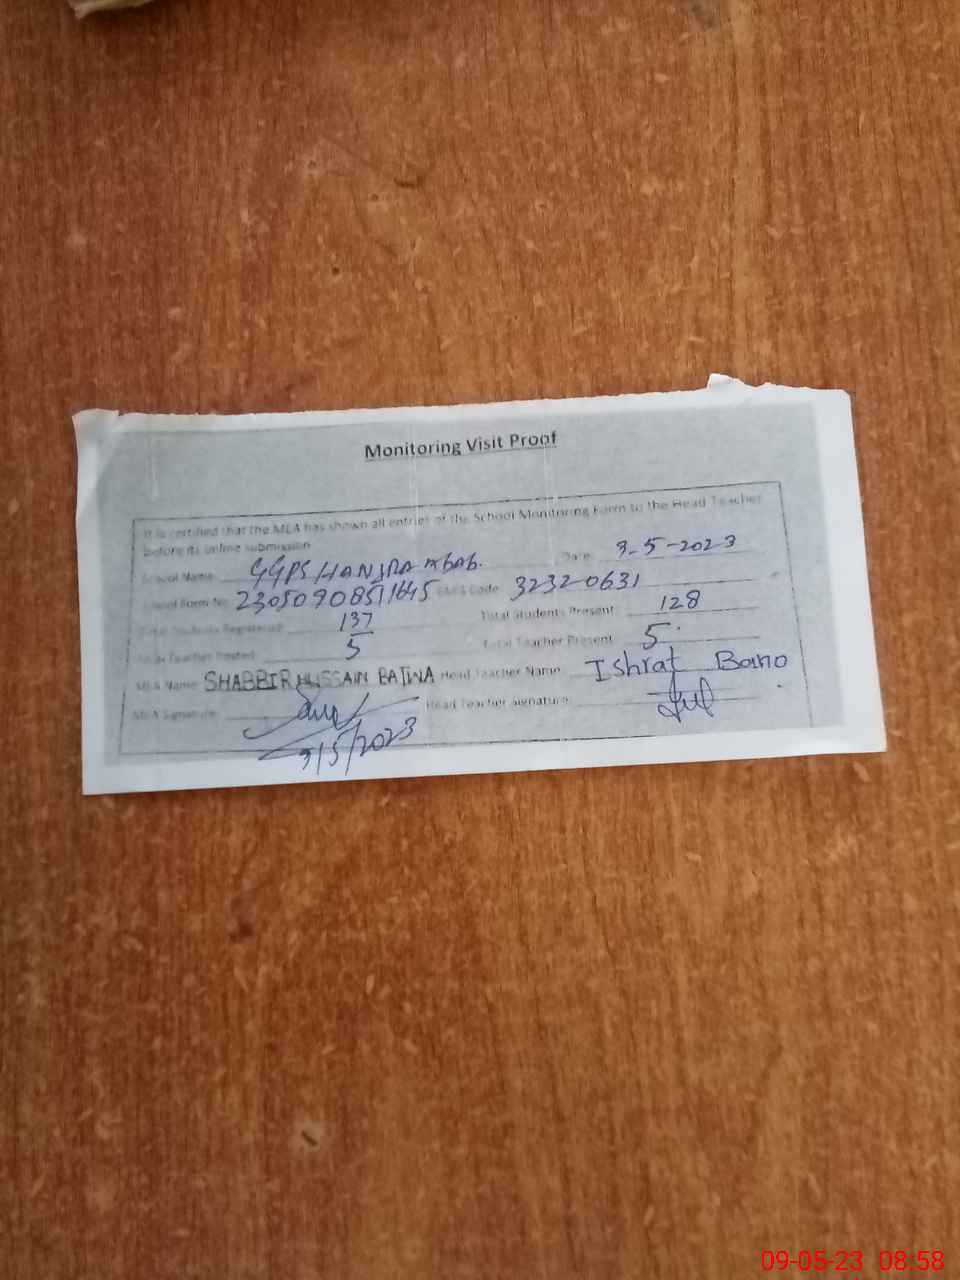 Monitoring Visit Proof
It is certified that the MEA has shown all entries of the School Monitoring Form to the Head Teacher
before its online submission
School Name: GGPS HANJRA Date: 9-5-2023
School Form No: 23050908511645 EMIS Code: 32320631
Total Students Registered: 137 Total Students Present: 128
Total Teacher Posted: 5 Total Teacher Present: 5
MEA Name: SHABBIR HUSSAIN Head Teacher Name: Ishrat Bano
MEA Signature: Head Teacher Signature:
9/5/2023
09-05-23 08:58